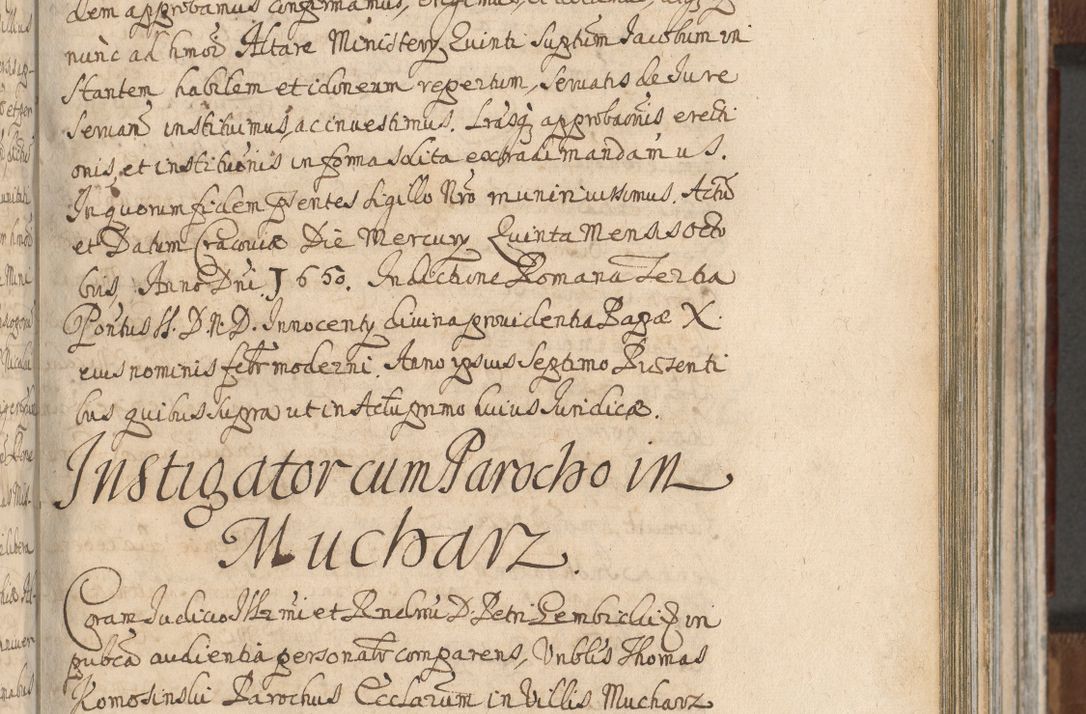 dem approbamus confirmamus, erigimus,
nunc ad hmoi Altare Ministery Quinti suptum Jacobum in
stantem habilem et idoneum repertum, seruatis de Jure
seruan instituimus, ac inuestimus. Lrasq approbaonis erecti
onis, et instituonis in forma solita extradi mandamus.
In quorum fidem pntes sigillo Nro muniri iussimus. Actu
et Datum Cracouiæ Die Mercury Quinta Mensis Octo
bris, Anno Dni. 1650. Indictione Romana Tertia
Pontus S. D. N. D. Innocenty diuina prouidentia Papæ X.
eius nominis felr moderni. Anno ipsius septimo Præsenti
bus quibus supra ut in Actu prmo huius Juridicæ.
Instigator cum Parocho in
Mucharz.
Coram Judicio Illrmi et Rndmi D. Petri Gembicki E in
pubca audientia personalr comparens, Vnblis Thomas
Komosinski Parochus Ecclarum in Villis Mucharz